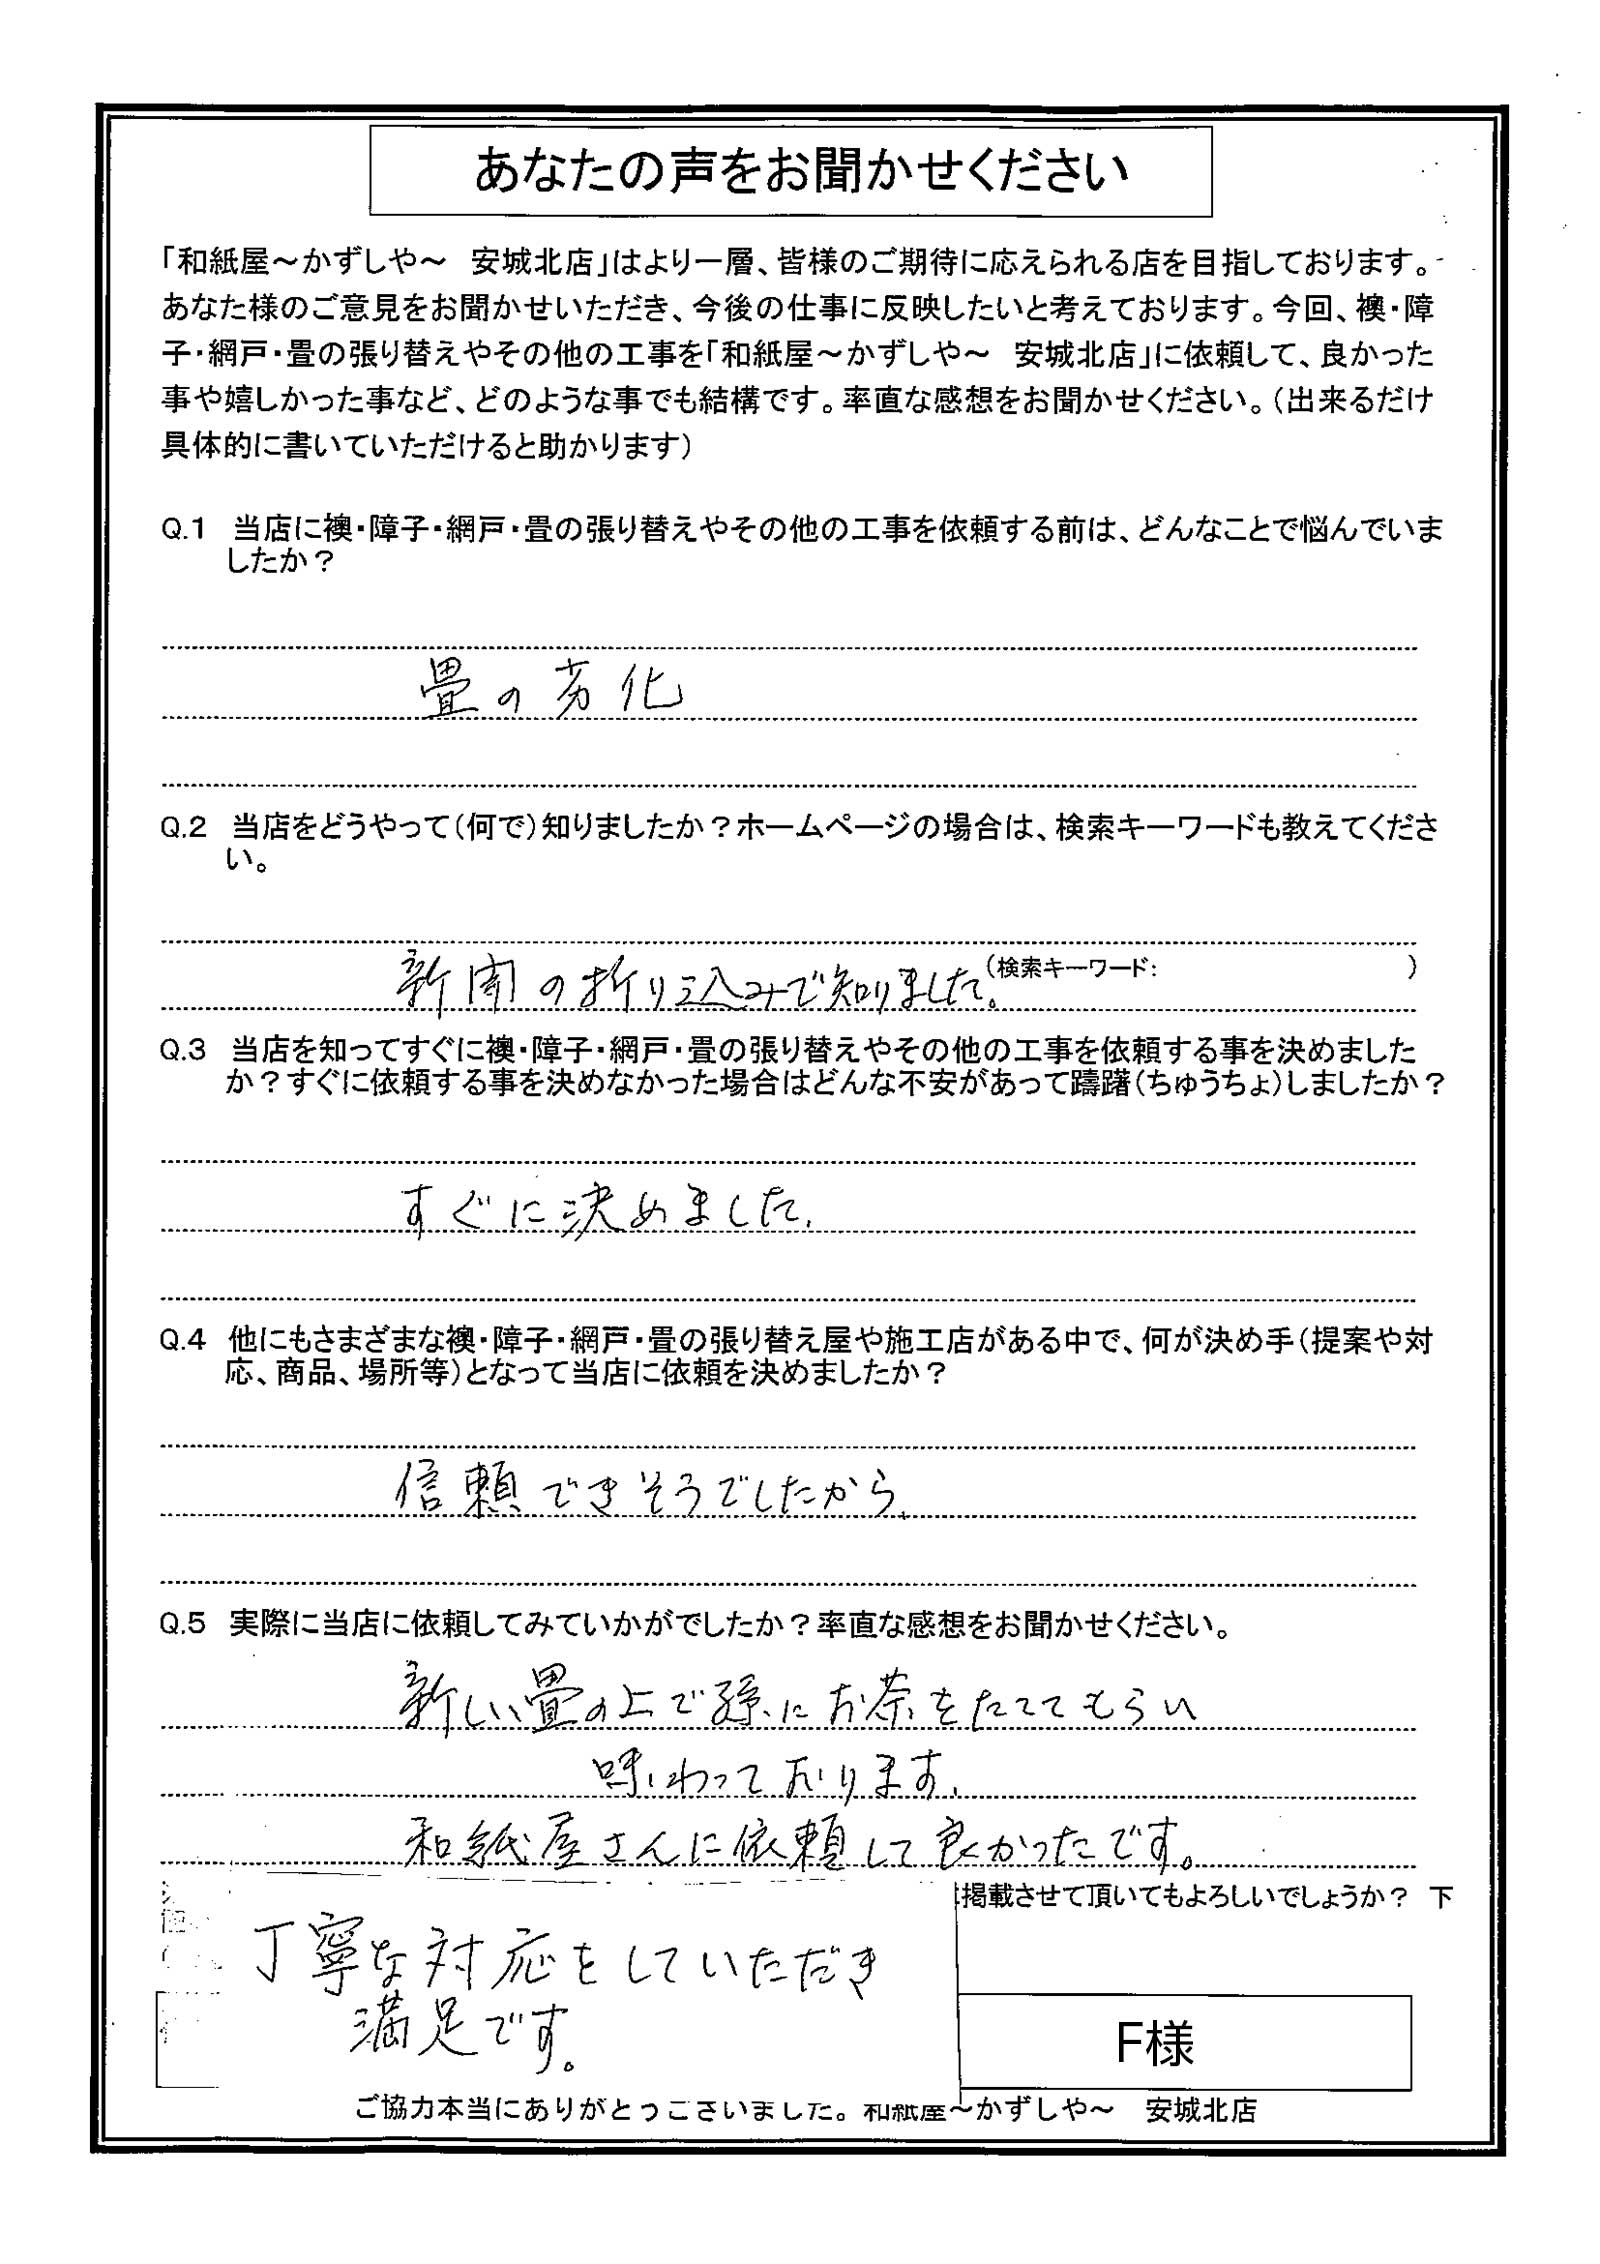 あなたの声をお聞かせください
「和紙屋～かずしや～　安城北店」はより一層、皆様のご期待に応えられる店を目指しております。
あなた様のご意見をお聞かせいただき、今後の仕事に反映したいと考えております。今回、襖・障
子・網戸・畳の張り替えやその他の工事を「和紙屋～かずしや～　安城北店」に依頼して、良かった
事や嬉しかった事など、どのような事でも結構です。率直な感想をお聞かせください。（出来るだけ
具体的に書いていただけると助かります）
Q.1　当店に襖・障子・網戸・畳の張り替えやその他の工事を依頼する前は、どんなことで悩んでいま
したか？
畳の劣化
Q.2　当店をどうやって（何で）知りましたか？ホームページの場合は、検索キーワードも教えてくださ
い。
新聞の折り込みで知りました。（検索キーワード：　　　　　）
Q.3　当店を知ってすぐに襖・障子・網戸・畳の張り替えやその他の工事を依頼する事を決めました
か？すぐに依頼する事を決めなかった場合はどんな不安があって躊躇（ちゅうちょ）しましたか？
すぐに決めました。
Q.4　他にもさまざまな襖・障子・網戸・畳の張り替え屋や施工店がある中で、何が決め手（提案や対
応、商品、場所等）となって当店に依頼を決めましたか？
信頼できそうでしたから。
Q.5　実際に当店に依頼してみていかがでしたか？率直な感想をお聞かせください。
新しい畳の上で孫にお茶をたててもらい
味わっております。
和紙屋さんに依頼して良かったです。
掲載させて頂いてもよろしいでしょうか？　下
丁寧な対応をしていただき
満足です。
F様
ご協力本当にありがとうございました。和紙屋～かずしや～　安城北店